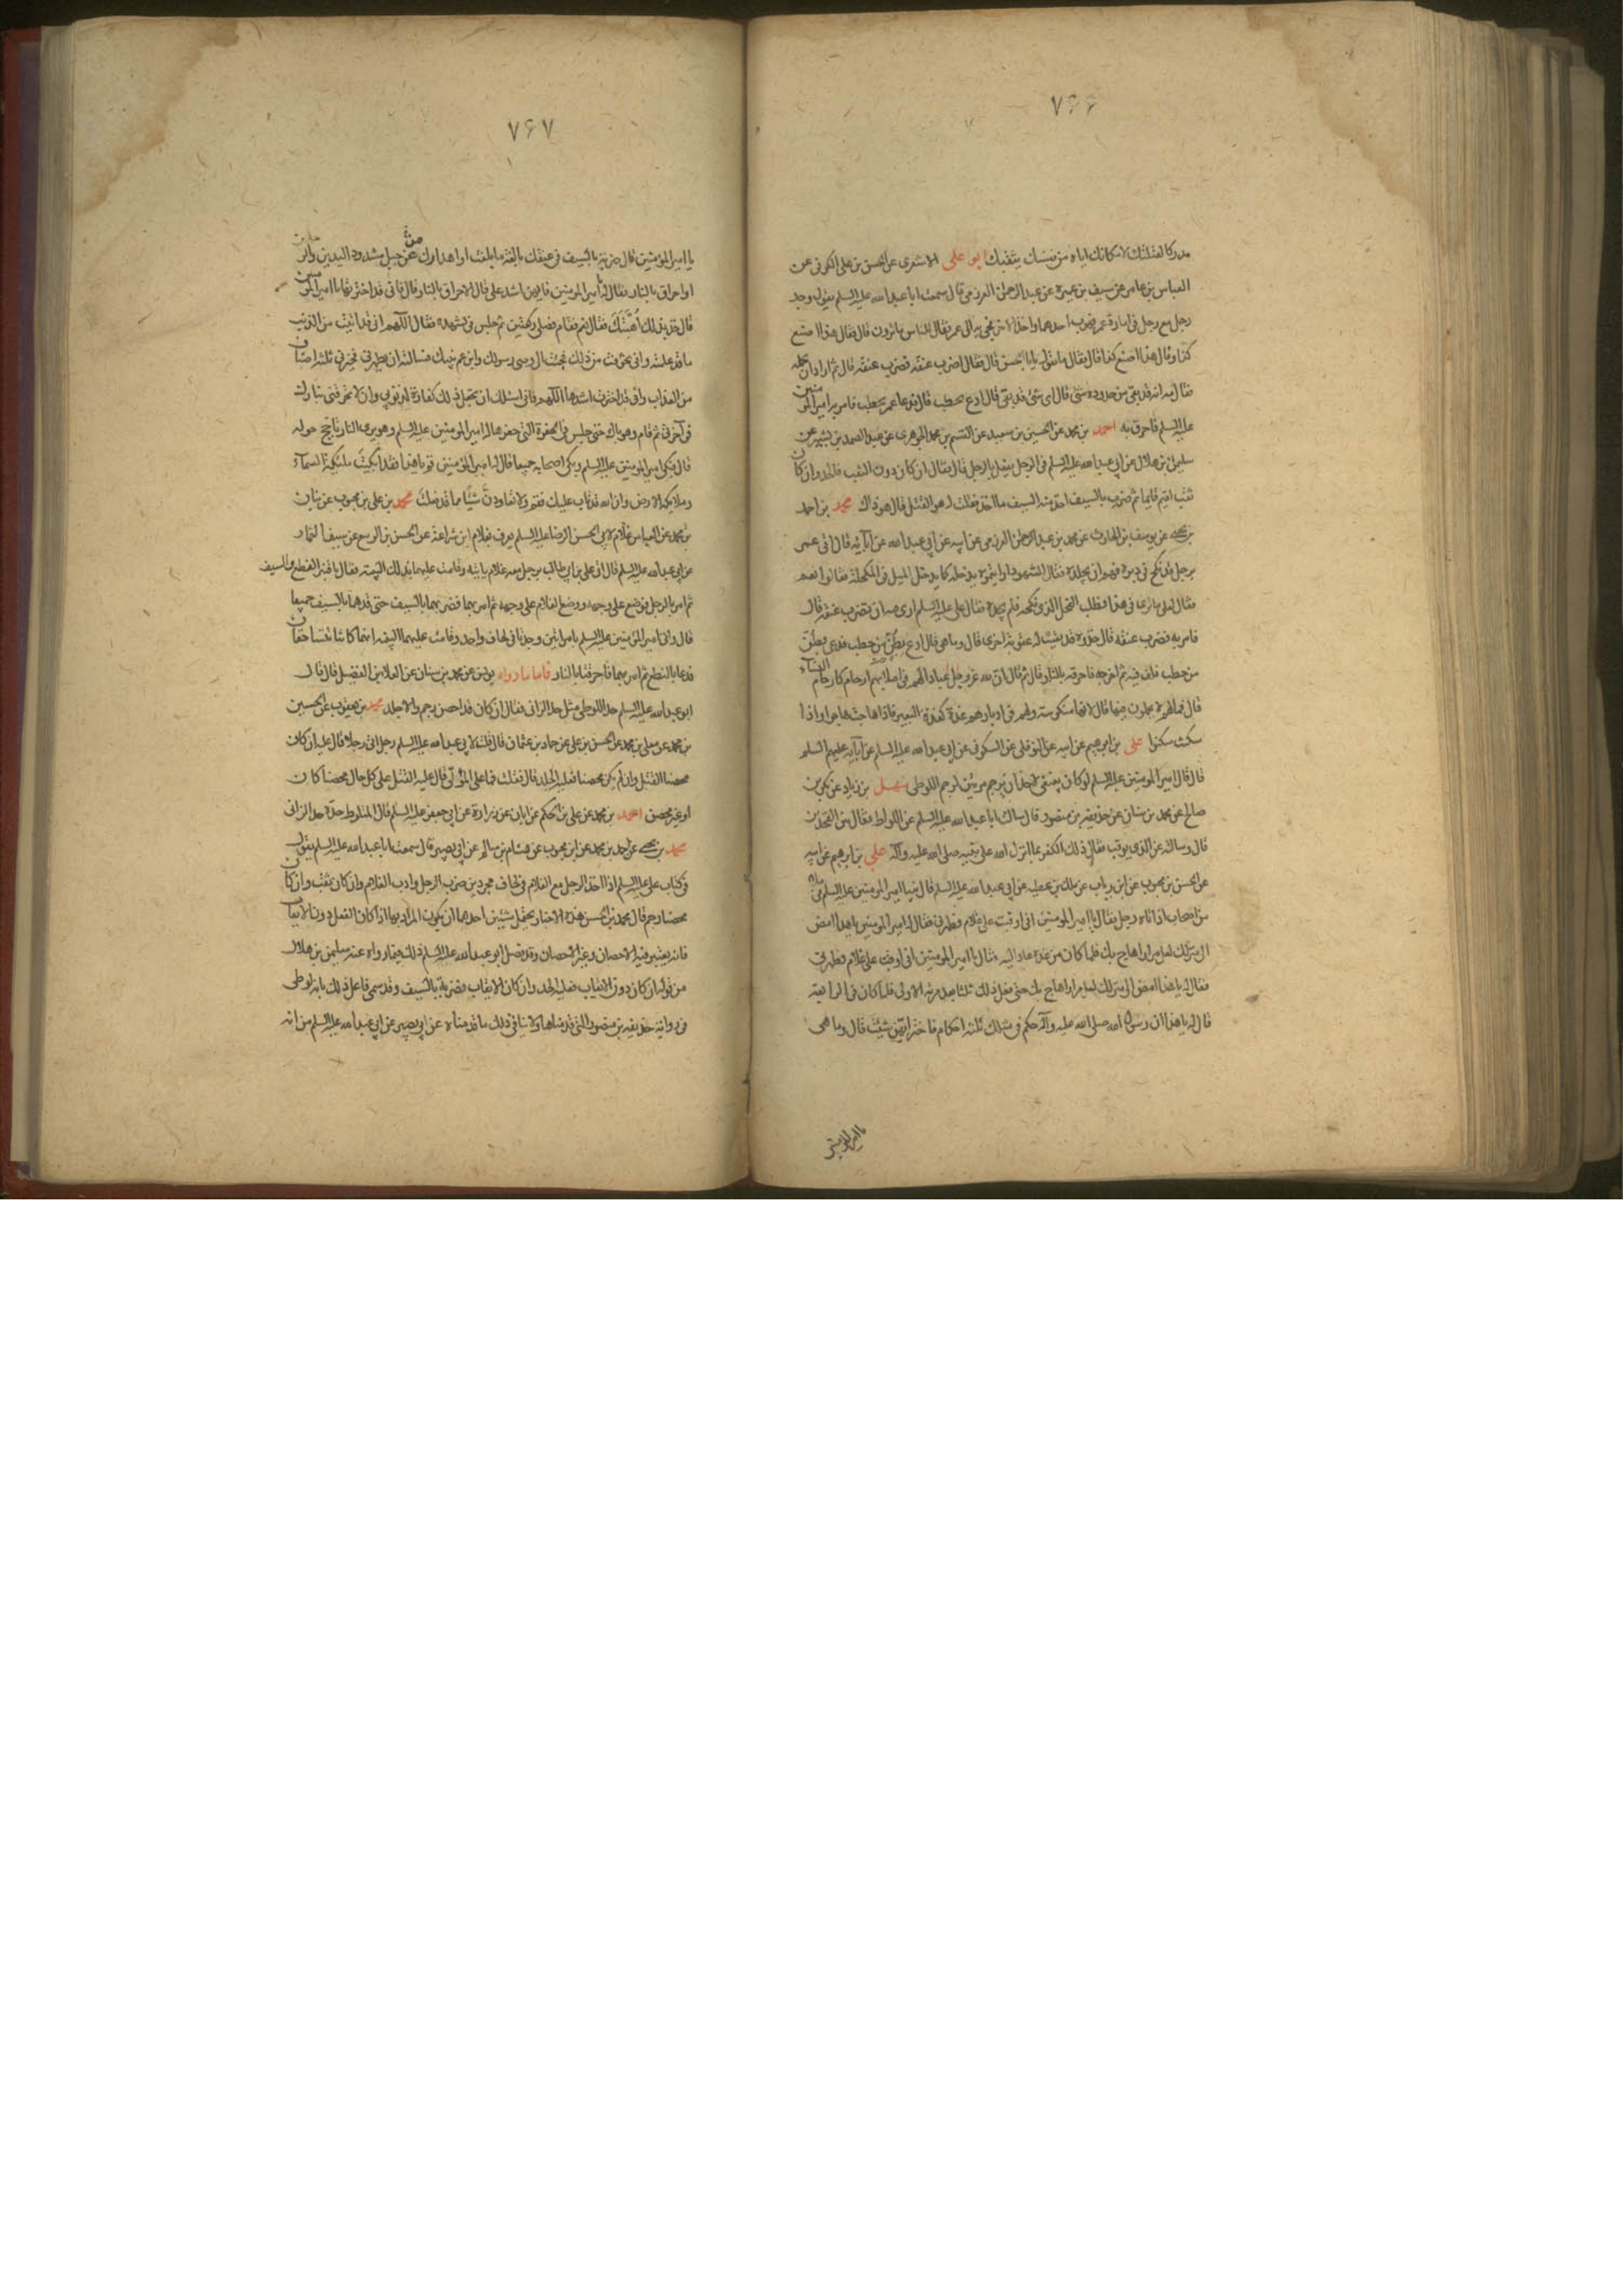 ٧۶۶
مدركا لقتلتك لامكانك اياه من نفسك يثقبك ابو على الاشعرى عن الحسن بن على الكوفى عن
العباس بن عامر عن سيف بن عميرة عن عبد الرحمن العرزمى قال سمعت ابا عبد الله عليه السلم يقول وجد
رجل مع رجل فى امارة عمر فهرب احدهما واخذ الاخر فجئ به الى عمر فقال للناس ما ترون قال فقال هذا اصنع
كذا وقال هذا اصنع كذا قال فقال ما تقول يا ابا الحسن قال فقال اضرب عنقه فضرب عنقه قال ثم اراد ان يحمله
فقال مه انه قد بقى من حدوده شئ قال اى شئ قد بقى قال ادع بحطب قال فدعا عمر بحطب فامر به امير المؤمنين
عليه السلم فاحرق به احمد بن محمد عن الحسين بن سعيد عن القسم بن محمد الجوهرى عن عبد الصمد بن بشير عن
سليمن بن هلال عن ابى عبد الله عليه السلم فى الرجل يفعل بالرجل قال فقال ان كان دون الثقب فالحد وان كان
ثقب اقيم قايما ثم ضرب بالسيف اخذ منه السيف ما اخذ فقلت له هو القتل قال هو ذاك محمد بن احمد
بن يحيى عن يوسف بن الحارث عن محمد بن عبد الرحمن العرزمى عن ابيه عن ابى عبد الله عن ابائه قال اتى عمر
برجل قد نكح فى دبره فهم ان يجلده فقال للشهود رايتموه يدخله كما يدخل الميل فى المكحلة فقالوا نعم
فقال لعلى ما ترى فى هذا فطلب الفحل الذى نكحه فلم يجده فقال على عليه السلم ارى فيه ان تضرب عنقه قال
فامر به فضرب عنقه قال خذوه فقد بقيت له عقوبة اخرى قال وما هى قال ادع بطن من حطب فدعى بطن
من حطب فلف فيه ثم اخرجه فاحرقه بالنار قال ثم قال ان لله عز وجل عبادا لهم فى اصلابهم ارحام كارحام النساء
قال فما لهم لا يحملون فيها قال لانها منكوسة ولهم فى ادبارهم غدة كغدة البعير فاذا هاجت هاجوا واذا
سكنت سكنوا على بن ابرهيم عن ابيه عن النوفلى عن السكونى عن ابى عبد الله عليه السلم عن ابائه عليهم السلم
قال قال امير المؤمنين عليه السلم لو كان ينبغى لاحد ان يرجم مرتين لرجم اللوطى سهل بن زياد عن بكر بن
صالح عن محمد بن سنان عن حذيفة بن منصور قال سالت ابا عبد الله عليه السلم عن اللواط فقال بين الفخذين
قال وسالته عن الذى يوقب فقال ذلك الكفر بما انزل الله على نبيه صلى الله عليه وآله على بن ابرهيم عن ابيه
عن الحسن بن محبوب عن ابن رياب عن ملك بن عطيه عن ابى عبد الله عليه السلم قال بينا امير المؤمنين عليه السلم فى ملاء
من اصحابه اذ اتاه رجل فقال يا امير المؤمنين انى اوقبت على غلام فطهرنى فقال له امير المؤمنين يا هذا امض
الى منزلك لعل مرارا هاج بك فلما كان من غد عاد اليه فقال يا امير المؤمنين انى اوقبت على غلام فطهرنى
فقال له يا هذا امض الى منزلك لعل مرارا هاج بك حتى فعل ذلك ثلثا بعد مرته الاولى فلما كان فى الرابعة
قال له يا هذا ان رسول الله صلى الله عليه وآله حكم فى مثلك ثلثة احكام فاختر ايهن شئت قال وما هى
يا امير المؤمنين
٧۶٧
يا امير المؤمنين قال ضربة بالسيف فى عنقك بالغة ما بلغت او اهدارك من جبل مشدود اليدين والرجلين
او احراق بالنار فقال يا امير المؤمنين فايهن اشد على قال الاحراق بالنار قال فانى قد اخترتها يا امير المؤمنين
قال خذ بذلك اهبتك فقال نعم فقام فصلى ركعتين ثم جلس فى تشهده فقال اللهم انى قد اتيت من الذنب
ما قد علمته وانى تخوفت من ذلك فجئت الى وصى رسولك وابن عم نبيك فسالته ان يطهرنى فخيرنى ثلثة اصناف
من العذاب وانى قد اخترت اشدها اللهم فانى اسئلك ان تجعل ذلك كفارة لذنوبى وان لا تحرقنى بنارك
فى آخرتى ثم قام وهو باك حتى جلس فى الحفرة التى حفرها له امير المؤمنين عليه السلم وهو يرى النار تاجج حوله
قال فبكى امير المؤمنين عليه السلم وبكى اصحابه جميعا فقال له امير المؤمنين قم يا هذا فقد ابكيت ملئكة السماء
وملائكة الارض وان الله قد تاب عليك فقم ولا تعاودن شيئا مما قد فعلت محمد بن على بن محبوب عن بنان
بن محمد عن العباس غلام لابى الحسن الرضا عليه السلم يعرف بغلام ابن شراعة عن الحسن بن الربيع عن سيف التمار
عن ابى عبد الله عليه السلم قال اتى على بن ابى طالب برجل معه غلام ياتيه وقامت عليهما بذلك البينه فقال يا قنبر النطع والسيف
ثم امر بالرجل فوضع على وجهه ووضع الغلام على وجهه ثم امر بهما فضربهما بالسيف حتى قدهما بالسيف جميعا
قال واتى امير المؤمنين عليه السلم بامراتين وجدتا فى لحاف واحد وقامت عليهما البينه انهما كانتا تتساحقان
فدعا بالنطع ثم امر بهما فاحرقتا بالنار فاما ما رواه يونس عن محمد بن سنان عن العلا بن الفضيل قال قال
ابو عبد الله عليه السلم حد اللوطى مثل حد الزانى فقال ان كان قد احصن رجم والا جلد محمد بن يعقوب عن الحسين
بن محمد عن معلى بن محمد عن الحسن بن على عن حماد بن عثمان قال قلت لابى عبد الله عليه السلم رجل اتى رجلا قال عليه ان كان
محصنا القتل وان لم يكن محصنا فعليه الجلد قال فقلت فما على الموتى قال عليه القتل على كل حال محصنا كان
او غير محصن احمد بن محمد عن على بن الحكم عن ابان عن زرارة عن ابى جعفر عليه السلم قال المتلوط حده حد الزانى
محمد بن يحيى عن احمد بن محمد عن ابن محبوب عن هشام بن سالم عن ابى بصير قال سمعت ابا عبد الله عليه السلم يقول
فى كتاب على عليه السلم اذا اخذ الرجل مع الغلام فى لحاف مجردين ضرب الرجل وادب الغلام وان كان ثقب وان كان
محصنا رجم قال محمد بن الحسن هذه الاخبار يحتمل شيئين احدهما ان يكون المراد بها اذا كان الفعل دون الايقاب
فانه يعتبر فيه الاحصان وغير الاحصان وقد فصل ابو عبد الله عليه السلم ذلك فيما رواه عنه سليمن بن هلال
من قوله ان كان دون الايقاب فعليه الحد وان كان الايقاب فضربة بالسيف وقد سمى فاعل ذلك بانه لوطى
فى رواية حذيفه بن منصور التى قدمناها ولا ينافى ذلك ما قدمناه عن ابى بصير عن ابى عبد الله عليه السلم من انه